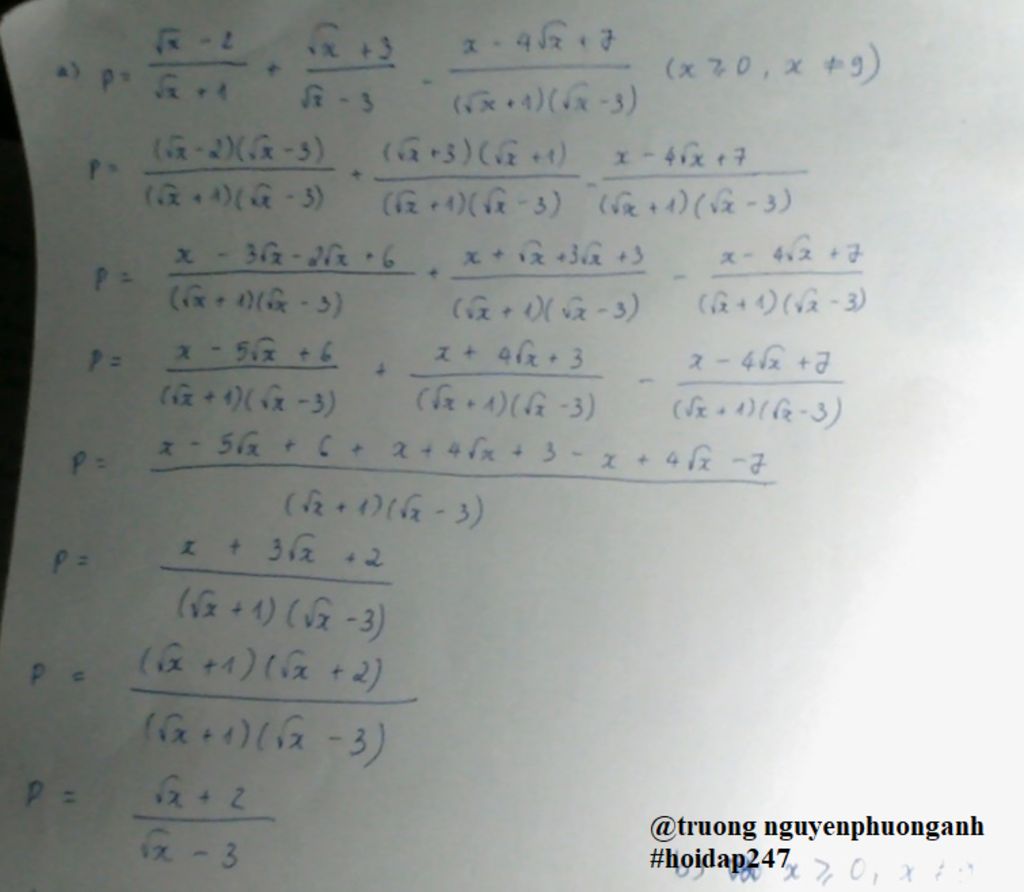 a) P = (√x - 2)/(√x + 1) + (√x + 3)/(√x - 3) - (x - 4√x + 7)/((√x + 1)(√x - 3)) (x ≥ 0, x ≠ 9)
P = ((√x - 2)(√x - 3))/((√x + 1)(√x - 3)) + ((√x + 3)(√x + 1))/((√x + 1)(√x - 3)) - (x - 4√x + 7)/((√x + 1)(√x - 3))
P = (x - 3√x - 2√x + 6)/((√x + 1)(√x - 3)) + (x + √x + 3√x + 3)/((√x + 1)(√x - 3)) - (x - 4√x + 7)/((√x + 1)(√x - 3))
P = (x - 5√x + 6)/((√x + 1)(√x - 3)) + (x + 4√x + 3)/((√x + 1)(√x - 3)) - (x - 4√x + 7)/((√x + 1)(√x - 3))
P = (x - 5√x + 6 + x + 4√x + 3 - x + 4√x - 7)/((√x + 1)(√x - 3))
P = (x + 3√x + 2)/((√x + 1)(√x - 3))
P = ((√x + 1)(√x + 2))/((√x + 1)(√x - 3))
P = (√x + 2)/(√x - 3)
@truong nguyenphuonganh
#hoidap247
x ≥ 0, x